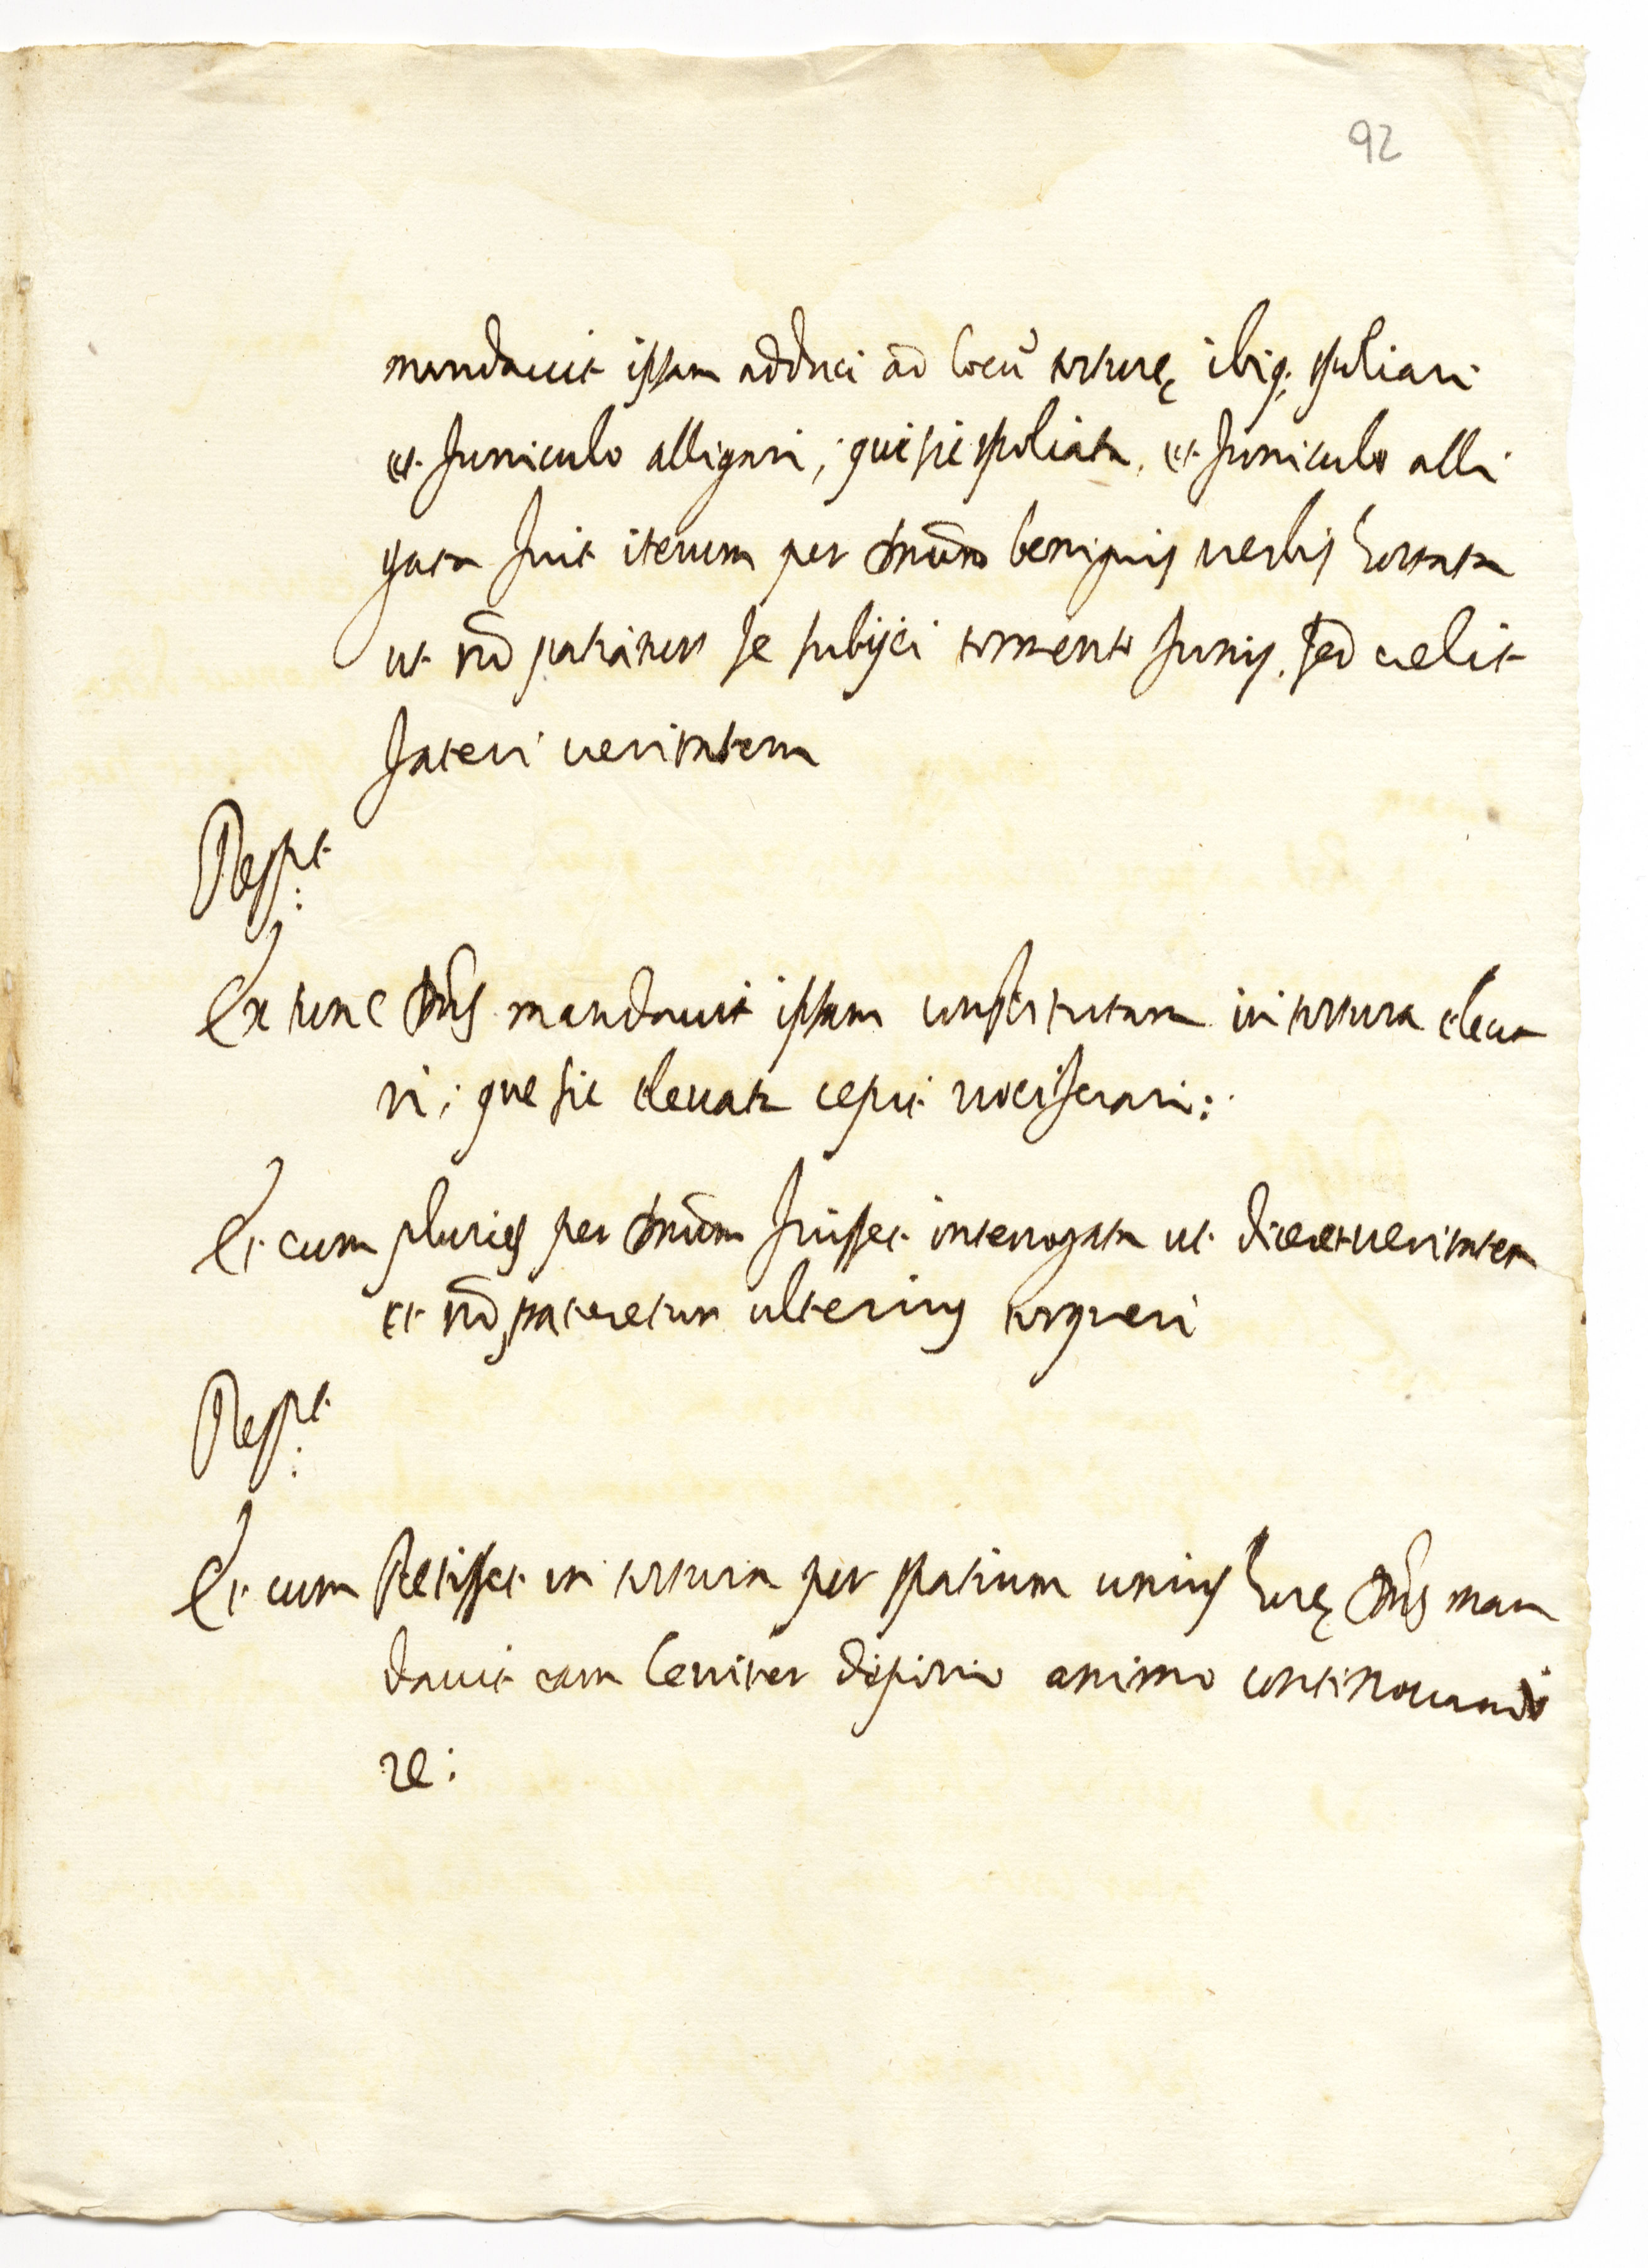 92
mandauit ipsam adduci ad locũ torturę ibiq; spoliari
et funiculo alligari, que sic spoliata, et funiculo alli
gata fuit iterum per Dnũm benignis uerbis hortata
ut nõ patiatur se subijci tormento funis, sed uelit
fateri ueritatem
Respt:
Ex tunc Dñs mandauit ipsam constitutam in tortura eleua
ri; que sic eleuata cepit uociferari:
Et cum pluries per Dnũm fuisset interrogata ut diceret ueritatem
et nõ pateretur ulterius torqueri
Respt:
Et cum stetisset in tortura per spatium unius horę Dñs man
dauit eam leuiter deponi animo continouandi
re: